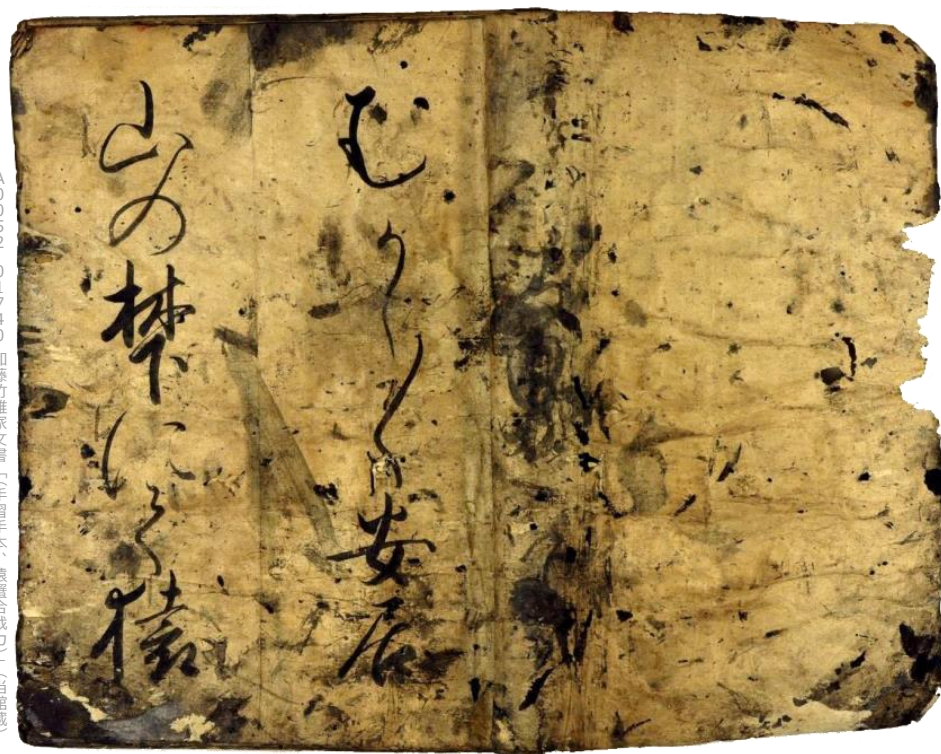 むかし〱安居
山の梺にて猿
A0052 01740 加藤竹雄家文書「(手習手本、猿蟹合戦カ)」(当館蔵)